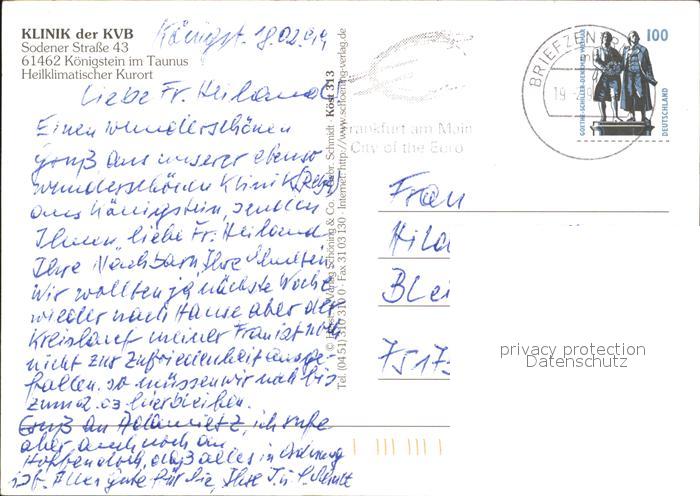 KLINIK der KVB
Sodener Straße 43
61462 Königstein im Taunus
Heilklimatischer Kurort
Königst. 18.02.99
Liebe Fr. Heiland!
Einen wunderschönen
Gruß aus unserer ebenso
wunderschönen Klinik (Reha)
aus Königstein, senden
Ihnen, liebe Fr. Heiland
Ihre Nachbarn, Ihre
Wir wollten ja nächste Woche
wieder nach Hause aber der
Kreislauf meiner Frau ist noch
nicht zur Zufriedenheit ausge-
fallen. so müssen wir noch bis
zum 2.03 hierbleiben.
Gruß an ich rufe
aber auch noch an
Hoffe doch, daß alles in Ordnung
ist. Alles gute für Sie, Ihre J. u.
© Verlag Schöning & Co. + Gebr. Schmidt · Köst 313
Tel. (04 51) 310 310 · Fax 31 03 130 · Internet: http://www.schoening-verlag.de
Frankfurt am Main
City of the Euro
BRIEFZEN
19
100
GOETHE-SCHILLER-DENKMAL WEIMAR
DEUTSCHLAND
Frau
Hila
Blei
7517
privacy protection
Datenschutz